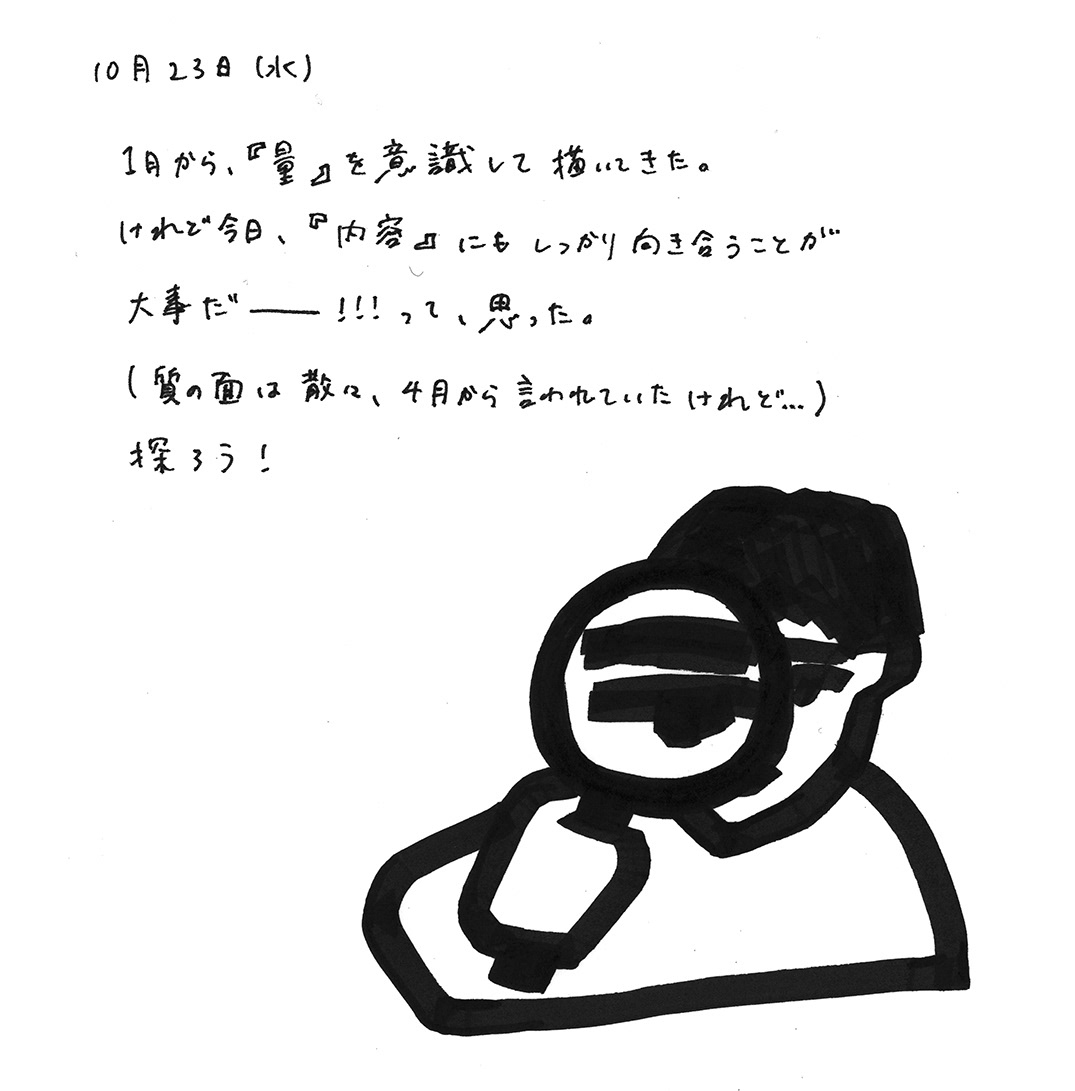 10月23日(水)
1月から、『量』を意識して描いてきた。
けれど今日、『内容』にもしっかり向き合うことが
大事だ――!!!って、思った。
(質の面は散々、4月から言われていたけれど...)
探ろう!